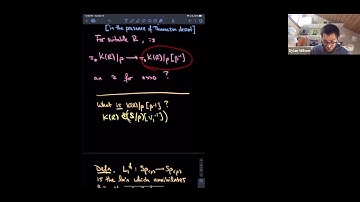 [in the presence of Thomason descent]
For suitable R, is
π₊K(R)/p → π₊K(R)/p[β⁻¹]
an ≅ for *>>0 ?
What is K(R)/p[β⁻¹] ?
K(R) ⊗ (S/p)[v₁⁻¹]
Defn. L₁ᶠ : Sp₍ₚ₎ → Sp₍ₚ₎
is the loc'n which annihilates
Dylan Wilson